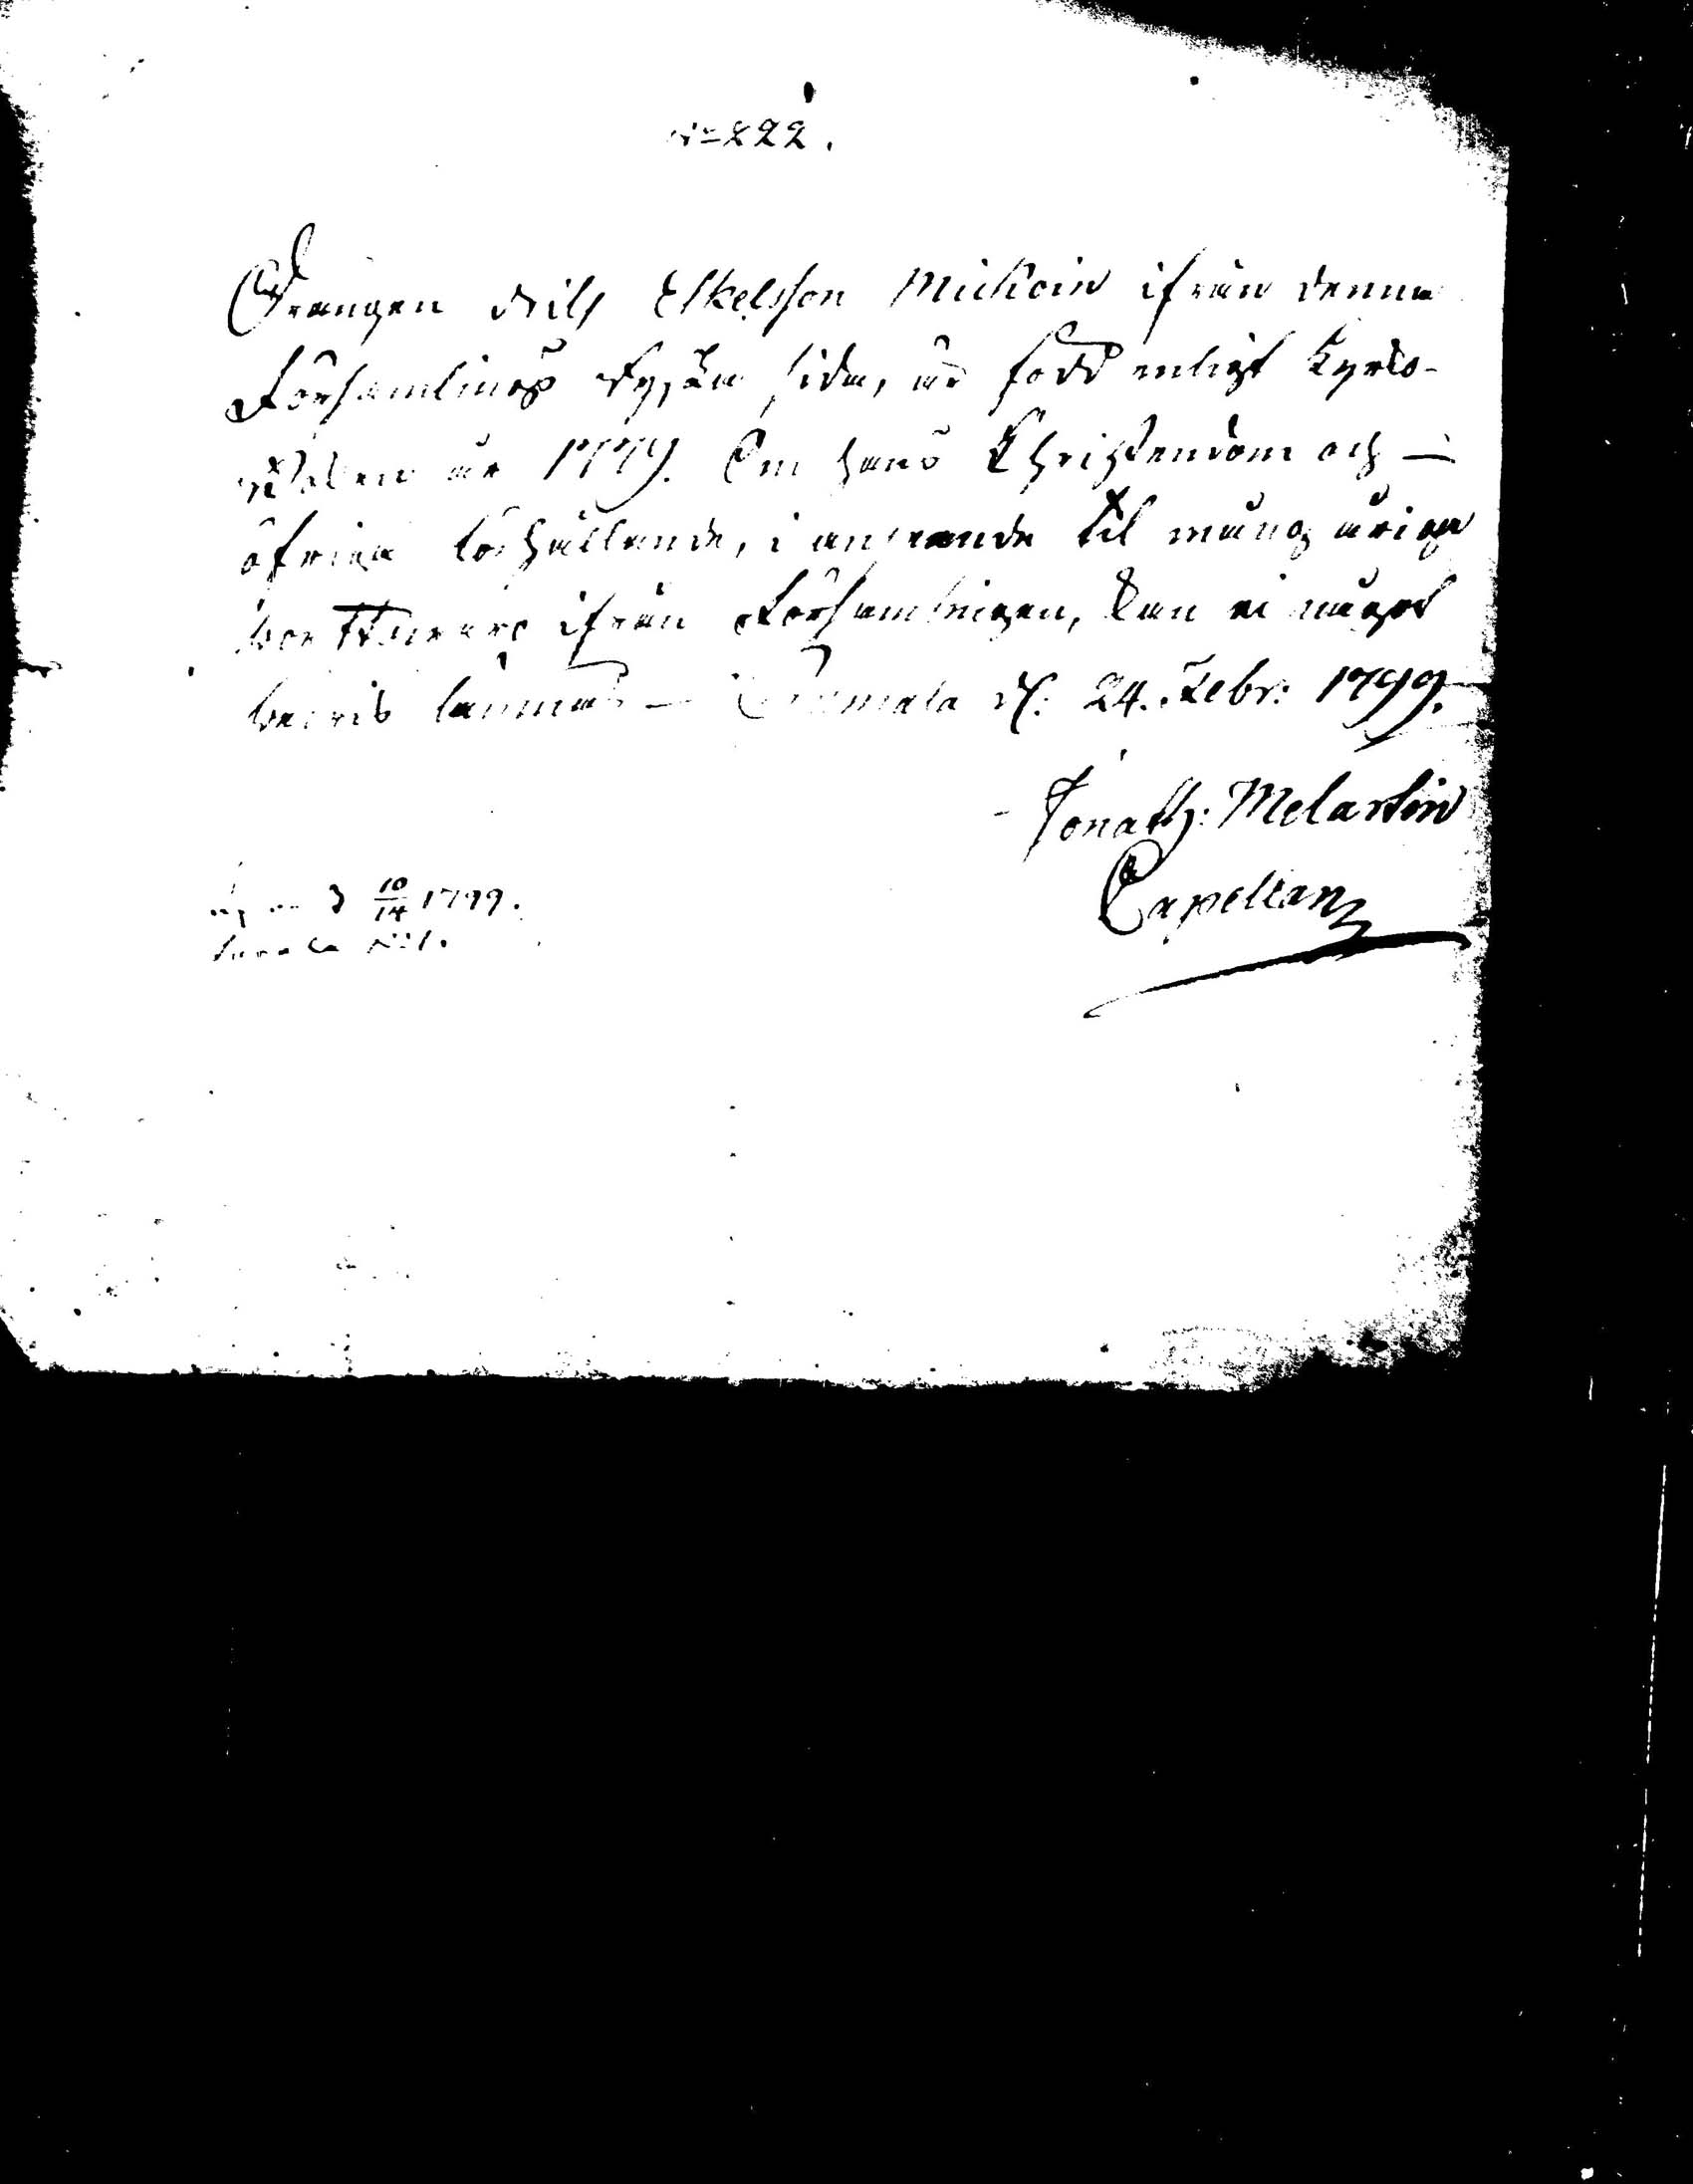 No 222.
Drängen Nils Eskelsson Mickoin ifrån denna
Församlings Ryska sida, är född enligt Kyrko-
boken år 1779. Om hans Christendom och
öfriga förhållande, i anseende til mång åriga
bortovaro ifrån Församlingen, kan ei något
bevis lämnas – d. 24. Febr: 1799.
Jonath: Melartin
Capellan
10/14 1799.